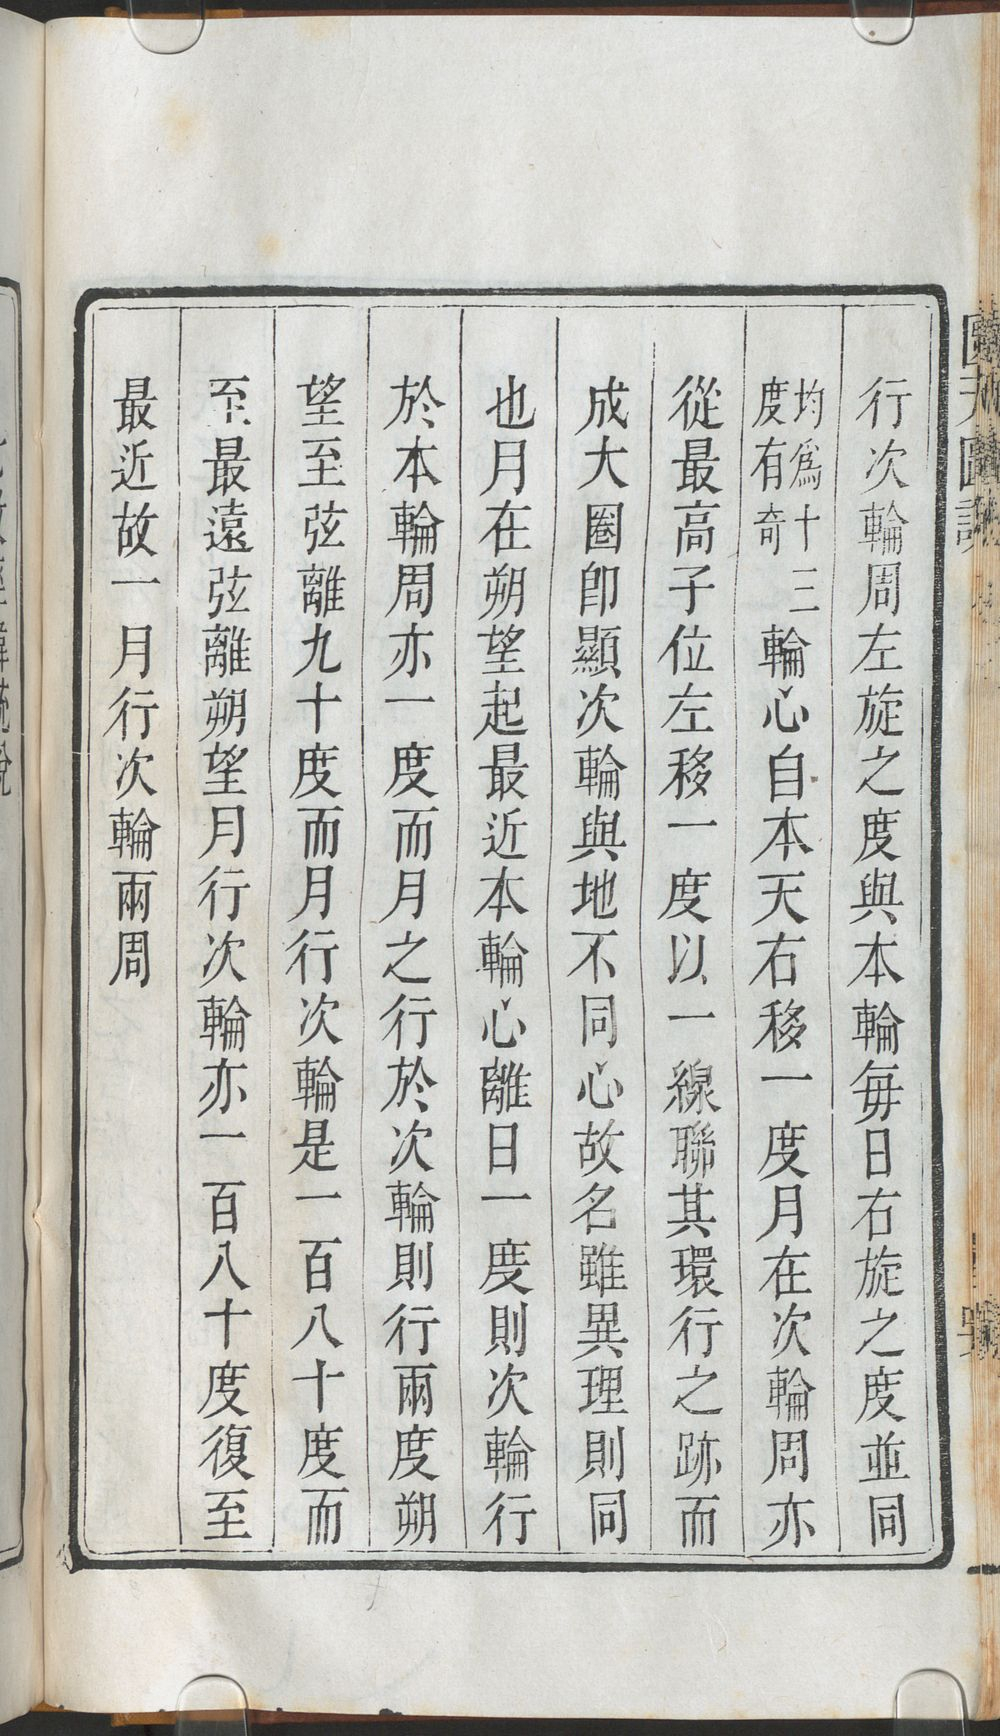 行次輪周左旋之度與本輪每日右旋之度並同
均為十三
度有奇
輪心自本天右移一度月在次輪周亦
從最高子位左移一度以一線聯其環行之跡而
成大圈卽顯次輪與地不同心故名雖異理則同
也月在朔望起最近本輪心離日一度則次輪行
於本輪周亦一度而月之行於次輪則行兩度朔
望至弦離九十度而月行次輪是一百八十度而
至最遠弦離朔望月行次輪亦一百八十度復至
最近故一月行次輪兩周